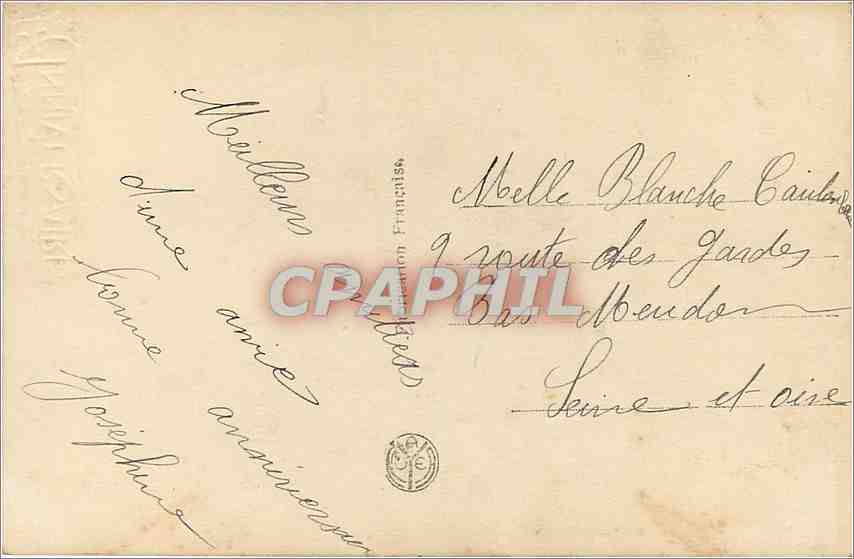 Meilleurs
d'une amie anniversaire
bonne
Joséphine
Fabrication Française
CPAPHIL
Melle Blanche
9 route des Gardes
Bas Meudon
Seine et oise
ANNIVERSAIRE